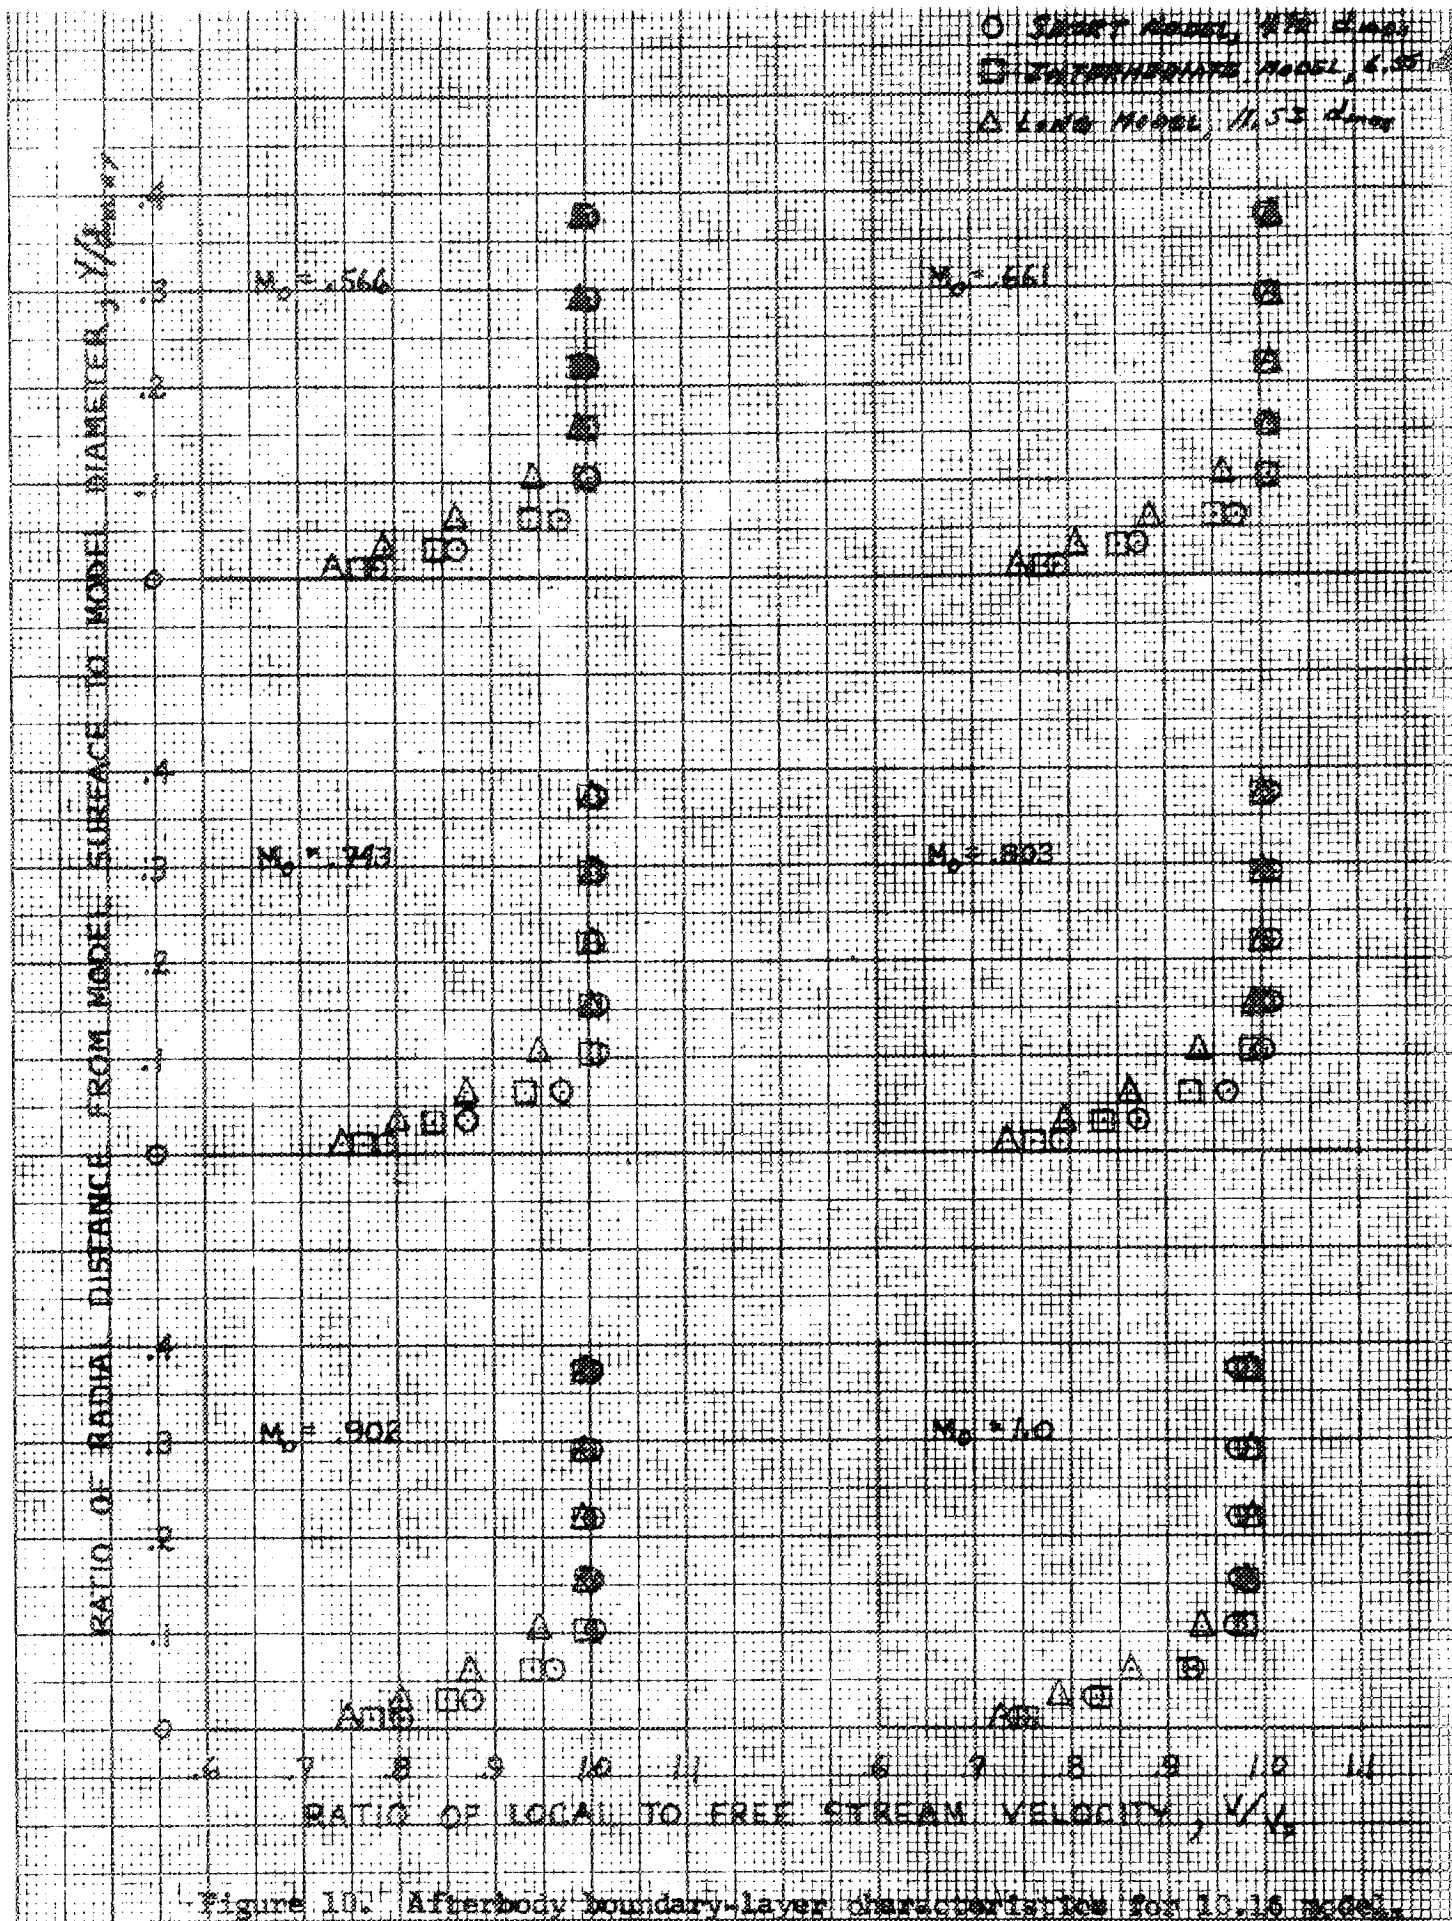 ○ SHORT MODEL, d max
□ INTERMEDIATE MODEL, 6.55
△ LONG MODEL, 11.53 dmax
RATIO OF RADIAL DISTANCE FROM MODEL SURFACE TO MODEL DIAMETER, Y/dmax
.4
M₀ = .566
M₀ = .661
.3
.2
.1
0
.4
M₀ = .743
M₀ = .803
.3
.2
.1
0
.4
M₀ = .902
M₀ = 1.0
.3
.2
.1
0
.6 .7 .8 .9 1.0 1.1 .6 .7 .8 .9 1.0 1.1
RATIO OF LOCAL TO FREE STREAM VELOCITY, V/V₀
Figure 10. Afterbody boundary-layer characteristics for 10.16 model.